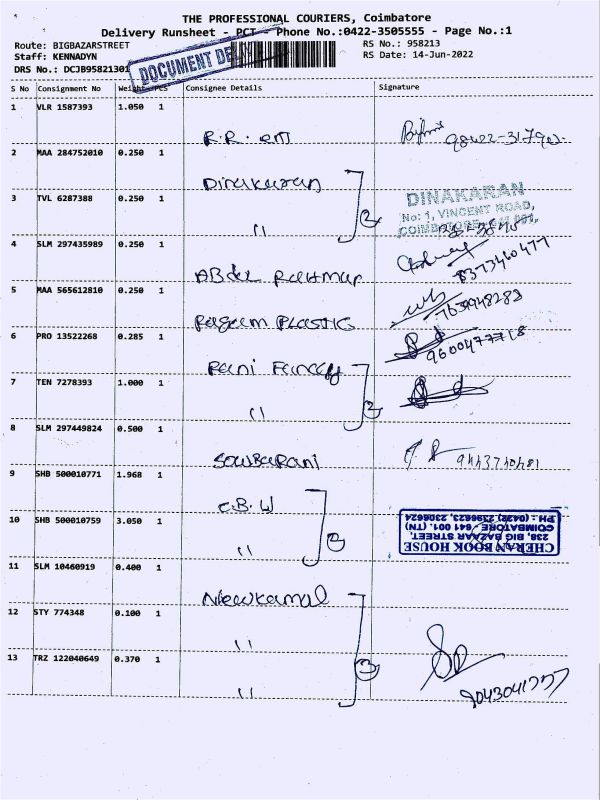 THE PROFESSIONAL COURIERS, Coimbatore
Delivery Runsheet - PCT - Phone No.:0422-3505555 - Page No.:1
Route: BIGBAZARSTREET RS No.: 958213
Staff: KENNADYN RS Date: 14-Jun-2022
DRS No.: DCJB95821301
DOCUMENT
S No Consignment No Weight Pcs Consignee Details Signature
1 VLR 1587393 1.050 1
R.R. 
2 MAA 284752010 0.250 1
Dinakaran
3 TVL 6287388 0.250 1
"
2
DINAKARAN
No: 1, VINCENT ROAD,
4 SLM 297435989 0.250 1
Abdul Rahman 8373460477
5 MAA 565612810 0.250 1
PLASTIC 7639948282
6 PRO 13522268 0.285 1
Rani Fancy 9600477718
7 TEN 7278393 1.000 1
"
2
8 SLM 297449824 0.500 1
Soubarani
9 SHB 500010771 1.968 1
C.B.H
10 SHB 500010759 3.050 1
"
2
CHERAN BOOK HOUSE
238, BIG BAZAAR STREET,
COIMBATORE - 641 001. (TN)
PH : (0422) 2396623, 2306624
11 SLM 10460919 0.400 1
Newkamal
12 STY 774348 0.100 1
"
13 TRZ 122040649 0.370 1
"
3